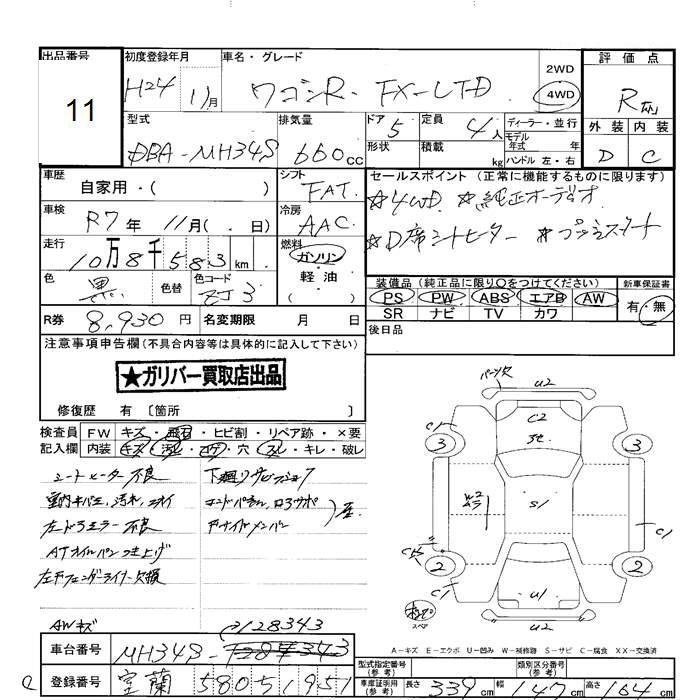 出品番号
11
初度登録年月
H24 11月
車名・グレード
ワゴンR FX-LTD
2WD
4WD
評価点
R
外装 内装
D C
型式
DBA-MH34S
排気量
660cc
ドア 5
形状
定員 4人
積載 kg
ディーラー・並行
モデル年式 年式
ハンドル 左・右
車歴
自家用・( )
シフト
FAT
セールスポイント (正常に機能するものに限ります)
☆4WD ☆純正オーディオ
☆D席シートヒーター ☆プッシュスタート
車検
R7年 11月( . 日)
冷房
AAC
走行
10万8千583km
燃料
ガソリン
軽油
( )
色
黒
色替
色コード
ZJ3
装備品 (純正品に限り○をつけてください)
PS PW ABS エアB AW
SR ナビ TV カワ
新車保証書
有・無
R券 8,930円
名変期限 月 日
後日品
注意事項申告欄(不具合内容等は具体的に記入して下さい)
★ガリバー買取店出品
修復歴 有〔箇所 〕
検査員記入欄
FW キズ・飛石・ヒビ割・リペア跡・×要
内装 キズ・汚れ・コゲ・穴・スレ・キレ・破レ
シートヒーター不良
室内キバミ、汚れ、ニオイ
左ドアミラー不良
ATオイルパンつき上げ
左フェンダーライナー欠損
AWキズ
下廻りサビ
エンドパネル、ロアサポ
サイドメンバー
パーツ欠
U2
C2
C1
3
3
W2
S1
C1
2
2
C1
U1
U2
A-キズ E-エクボ U-凹み W-補修跡 S-サビ C-腐食 XX-交換済
128343
車台番号
MH34S-
登録番号
室蘭 580 51951
型式指定番号(参考)
類別区分番号(参考)
車庫証明用(参考)
長さ 339cm
幅 147cm
高さ 164cm